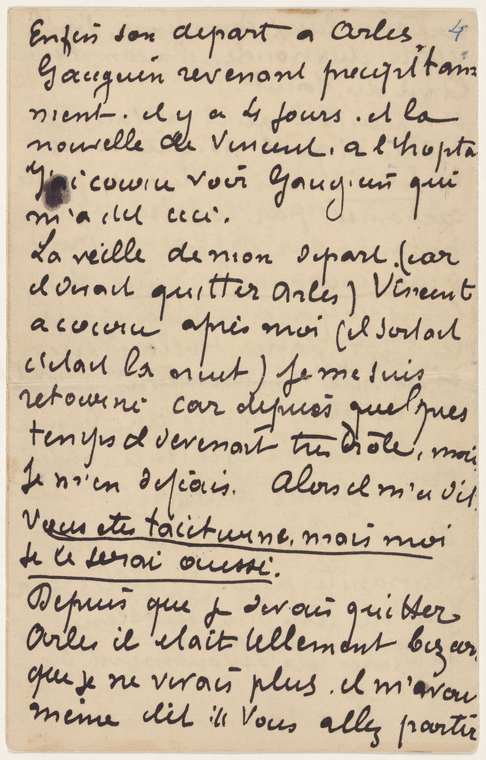 Enfin son depart a Arles 4
Gauguin revenant precipitam
ment. il y a 4 jours. et la
nouvelle de Vincent. a l'hopita
J'ai couru voir Gauguin qui
m'a dit ceci.
La veille de mon depart. (car
il devait quitter Arles) Vincent
a couru après moi (il sortait
c'etait la nuit) Je me suis
retourné car depuis quelques
temps il devenait très drôle, mais
Je m'en defiais. Alors il m'a dit.
Vous etes taciturne, mais moi
je le serai aussi.
Depuis que je devais quitter
Arles il etait tellement bizarre
que je ne vivais plus. il m'avait
même dit : Vous allez partir